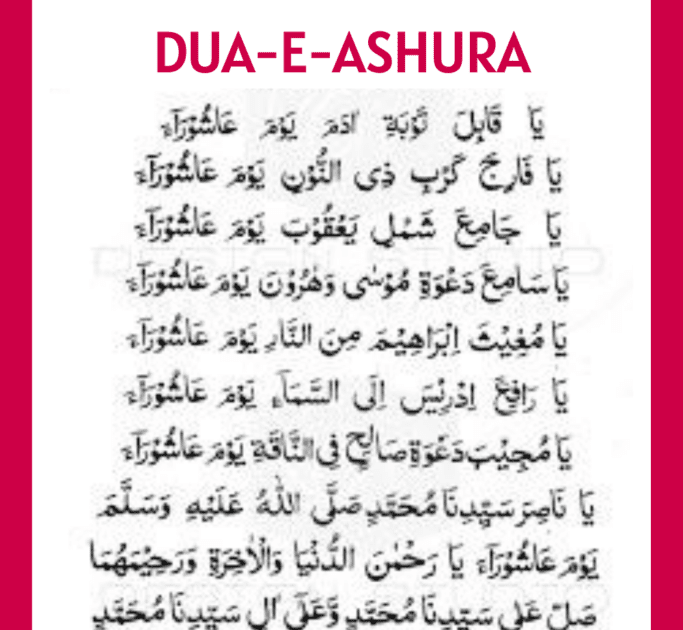 DUA-E-ASHURA
يَا قَابِلَ تَوْبَةِ اٰدَمَ يَوْمَ عَاشُوْرَآءَ
يَا فَارِجَ كَرْبِ ذِى النُّوْنِ يَوْمَ عَاشُوْرَآءَ
يَا جَامِعَ شَمْلِ يَعْقُوْبَ يَوْمَ عَاشُوْرَآءَ
يَا سَامِعَ دَعْوَةِ مُوْسٰى وَهٰرُوْنَ يَوْمَ عَاشُوْرَآءَ
يَا مُغِيْثَ اِبْرَاهِيْمَ مِنَ النَّارِ يَوْمَ عَاشُوْرَآءَ
يَا رَافِعَ اِدْرِيْسَ اِلَى السَّمَآءِ يَوْمَ عَاشُوْرَآءَ
يَا مُجِيْبَ دَعْوَةِ صَالِحٍ فِى النَّاقَةِ يَوْمَ عَاشُوْرَآءَ
يَا نَاصِرَ سَيِّدِنَا مُحَمَّدٍ صَلَّى اللّٰهُ عَلَيْهِ وَسَلَّمَ
يَوْمَ عَاشُوْرَآءَ يَا رَحْمٰنَ الدُّنْيَا وَالْاٰخِرَةِ وَرَحِيْمَهُمَا
صَلِّ عَلٰى سَيِّدِنَا مُحَمَّدٍ وَّعَلٰٓى اٰلِ سَيِّدِنَا مُحَمَّدٍ